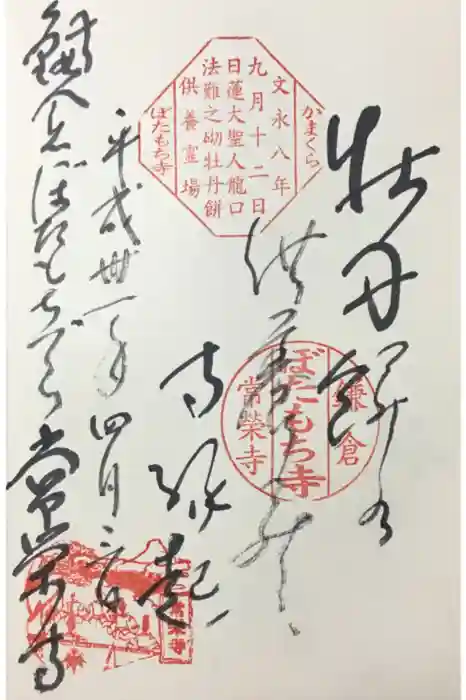 かまくら
文永八年
九月十二日
日蓮大聖人龍口
法難之砌牡丹餅
供養霊場
ぼたもち寺
牡丹餅の
供養
寺縁起
平成卅一年四月
ぼたもちでら常栄寺
鎌倉
ぼたもち寺
常榮寺